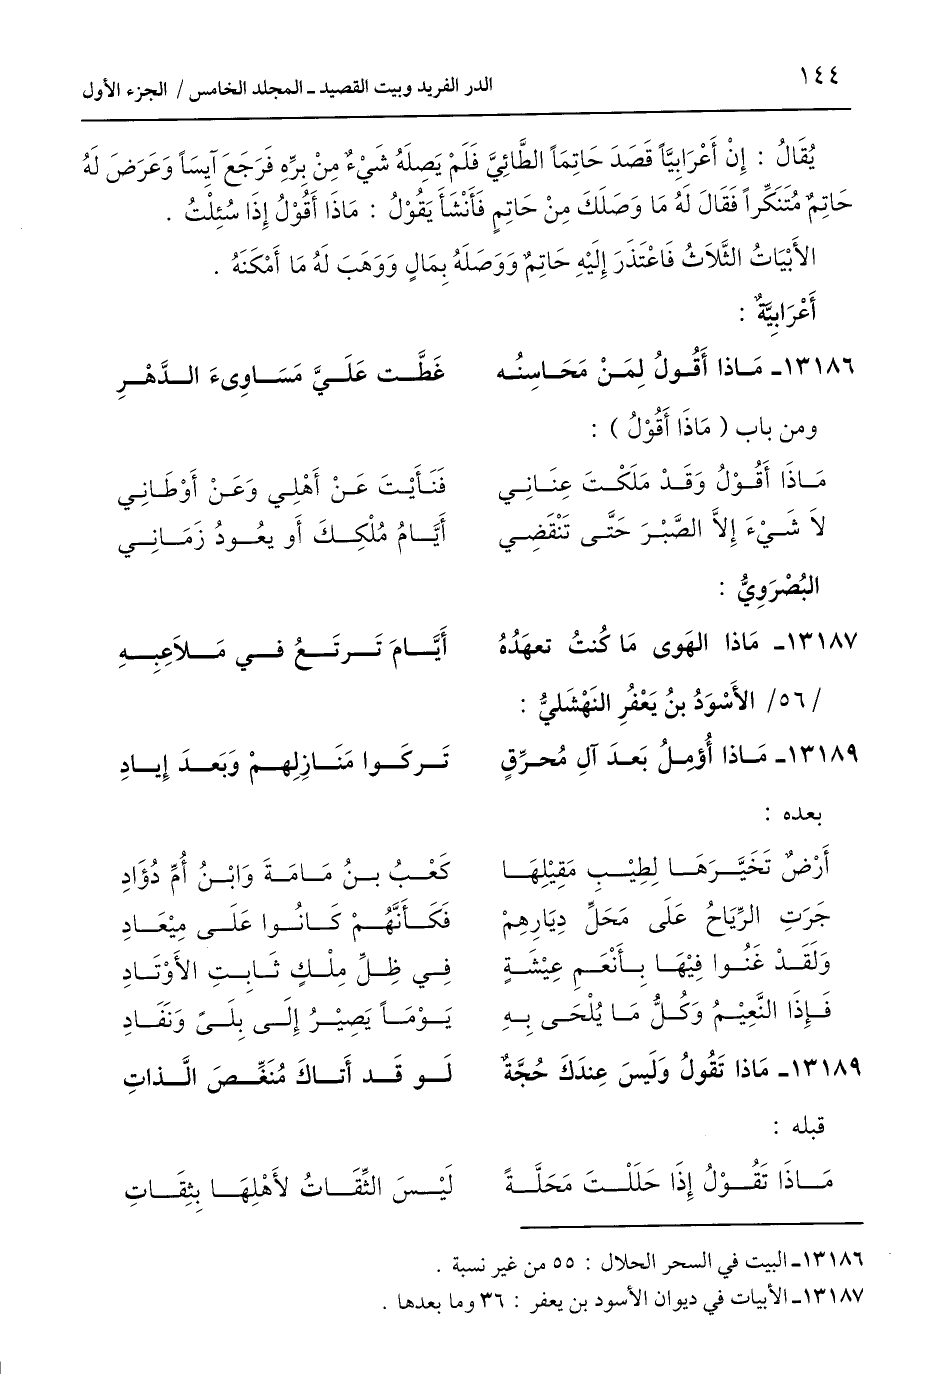 ١٤٤
الدر الفريد وبيت القصيد ـ المجلد الخامس / الجزء الأول
يُقَالُ : إِنْ أَعْرَابِيَّاً قَصَدَ حَاتِمَاً الطَّائِيَّ فَلَمْ يَصِلهُ شَيْءٌ مِنْ بِرِّهِ فَرَجَعَ آيِسَاً وَعَرَضَ لَهُ
حَاتِمٌ مُتَنَكِّراً فَقَالَ لَهُ مَا وَصَلَكَ مِنْ حَاتِمٍ فَأَنْشَأَ يَقُولُ : مَاذَا أَقُوْلُ إِذَا سُئِلْتُ .
الأَبْيَاتُ الثَّلَاثُ فَاعْتَذَرَ إِلَيْهِ حَاتِمٌ وَوَصَلَهُ بِمَالٍ وَوَهَبَ لَهُ مَا أَمْكَنَهُ .
أَعْرَابِيَّةٌ :
١٣١٨٦ـ مَاذا أَقُولُ لِمَنْ مَحَاسِنُه غَطَّت عَلَيَّ مَسَاوِىءَ الدَّهْرِ
ومن باب ( مَاذَا أَقُوْلُ ) :
مَاذَا أَقُوْلُ وَقَدْ مَلَكْتَ عِنَانِي فَنَأَيْتَ عَنْ أَهْلِي وَعَنْ أَوْطَانِي
لاَ شَيْءَ إِلاَّ الصَّبْرَ حَتَّى تَنْقَضِي أَيَّامُ مُلْكِكَ أو يعُودُ زَمَانِي
البُصْرَوِيُّ :
١٣١٨٧ـ مَاذا الهَوى مَا كُنتُ تعهَدُهُ أَيَّامَ تَرتَعُ في مَلاَعِبِهِ
/٥٦/ الأَسْوَدُ بنُ يَعْفُرِ النَهْشَليُّ :
١٣١٨٩ـ مَاذا أُؤمِلُ بَعدَ آلِ مُحرِّقٍ تَركُوا مَنَازِلِهمْ وَبَعدَ إِيادِ
بعده :
أَرْضٌ تَخَيَّرَهَا لِطِيْبِ مَقِيْلِهَا كَعْبُ بنُ مَامَةَ وَابْنُ أُمِّ دُؤَادِ
جَرَتِ الرِّيَاحُ عَلَى مَحَلِّ دِيَارِهِمْ فَكَأَنَّهُمْ كَانُوا عَلَى مِيْعَادِ
وَلَقَدْ غَنُوا فِيْهَا بِأَنْعَمِ عِيْشَةٍ فِي ظِلِّ مِلْكٍ ثَابتِ الأَوْتَادِ
فَإِذَا النَّعِيْمُ وَكُلُّ مَا يُلْحَى بِهِ يَوْمَاً يَصِيْرُ إِلَى بِلَىً وَنَفَادِ
١٣١٨٩ـ مَاذا تَقُولُ وَلَيسَ عِندَكَ حُجَّةٌ لَو قَد أَتاكَ مُنَغِّصَ الَّذاتِ
قبله :
مَاذَا تَقُوْلُ إِذَا حَلَلْتَ مَحَلَّةً لَيْسَ الثِّقَاتُ لأَهْلِهَا بِثِقَاتِ
١٣١٨٦ـ البيت في السحر الحلال : ٥٥ من غير نسبة .
١٣١٨٧ـ الأبيات في ديوان الأسود بن يعفر : ٣٦ وما بعدها .